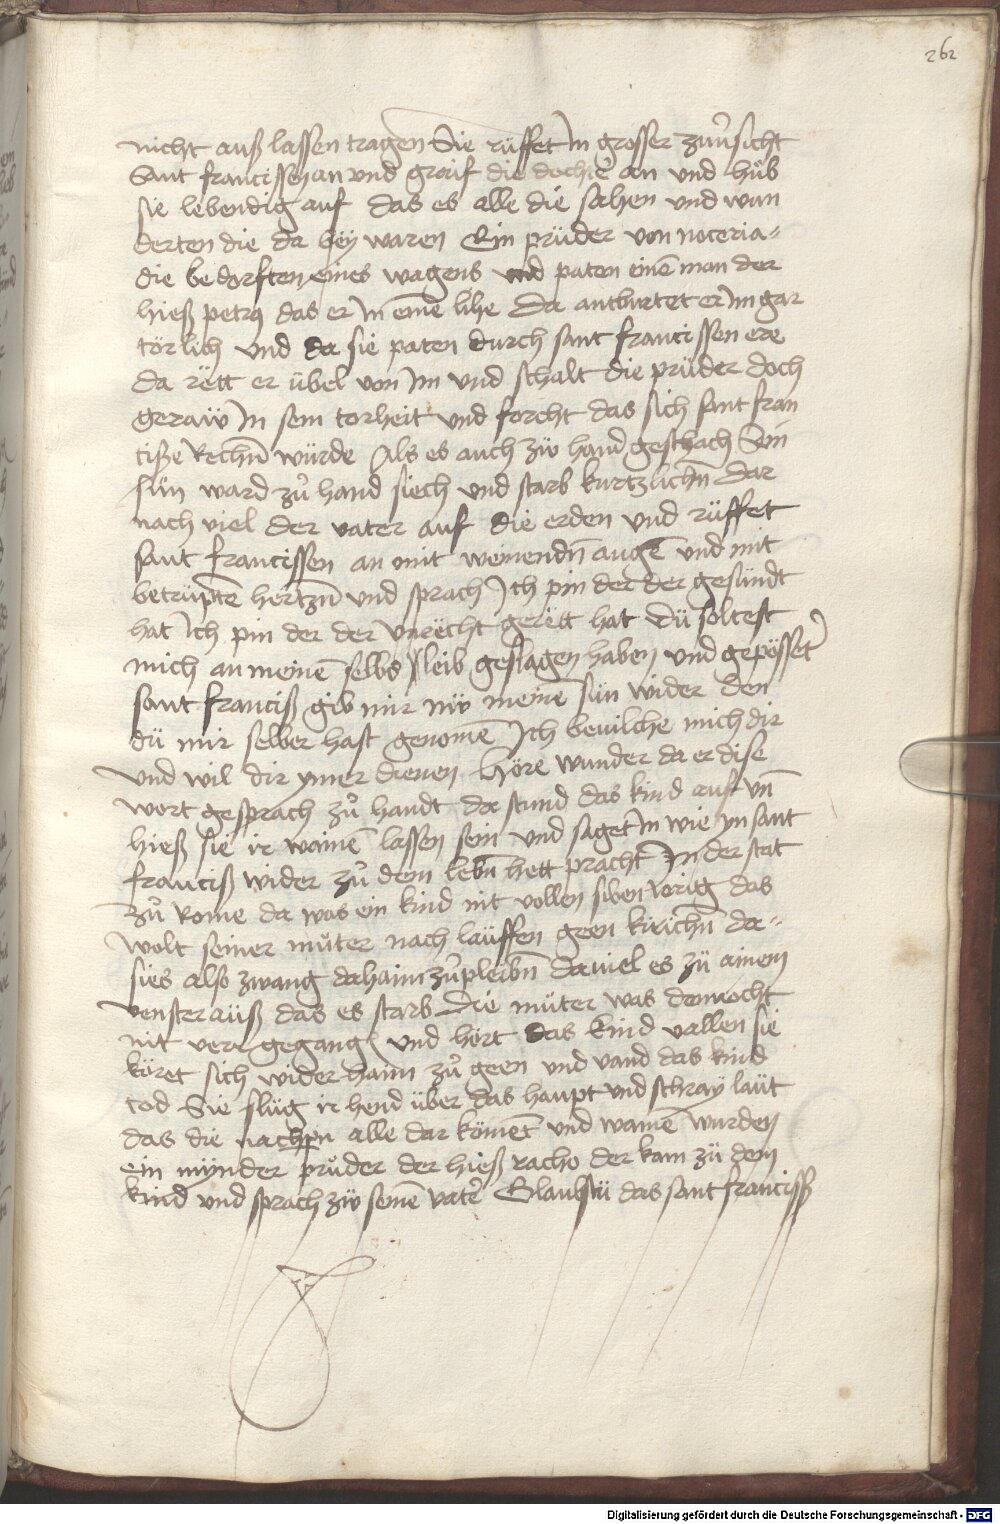 262
nicht auß lassen tragen Sie rüffet Jn grosser zuv̊sicht
Sant francissen an vnd graif die dochte᷑ an vnd hüb
sie lebendig auf das es alle die sahen vnd wun
derten die da bëy waren Ein prüder von noceria-
die bedorften eines wagens vnd paten einē man der
hieß petrꝰ das er Jn einē lihe Da antburtet er Jm gar
törlich vnd da sie paten durch sant francissen ere
da rëtt er übel von Jm vnd schalt die prüder doch
geraẅ Jn sein torheit vnd forcht das sich sant fran
tisze Rechn̄ würde Als es auch zü hand geschach Sin
sün ward zů hand siech vnd starb kurtzlichn̄ Dar
nach viel der vater auf die erden vnd rüffet
sant francissen an mit weinendn̄ augē vnd mit
betrüptē hertzn̄ vnd sprach Jch pin der der gesündt
hat Jch pin der der vnrëcht gerëtt hat Dü soltest
mich an meinē selbs leib geslagen haben vnd gepösset᷑
sant franciß gib mir nü meinē sün wider den
dü mir selber hast genomē Jch beuilche mich dir
vnd wil dir ymer dienen Höre wunder da er dise
wort gesprach zů handt da stund das kind auf vn̄
hieß sie ir wainē lassen sein vnd saget Jn wie yn sant
franciß wider zů dem lebn̄ hett pracht Jn der stat
zů Rome da was ein kind nit vollen siben iorig das
wolt seiner müter nach läuffen geen kirichn̄ da-
sies also zwang dahaim zů pleibn̄ da viel es zü ainem
venster auß das es starb Die müter was dennocht
nit verr gegangē vnd hört das kind vallen sie
köret sich wider haim zů geen vnd vand das kind
tod Sie slüg ir hend über das haupt vnd schraÿ laüt
das die nachpn̄ alle dar kömēt vnd wainē wurden
ein mÿnder prüder der hieß racho der kam zü dem
kind vnd sprach zü seinē vate᷑ Glaubstü das sant franciß
Digitalisierung gefördert durch die Deutsche Forschungsgemeinschaft - DFG